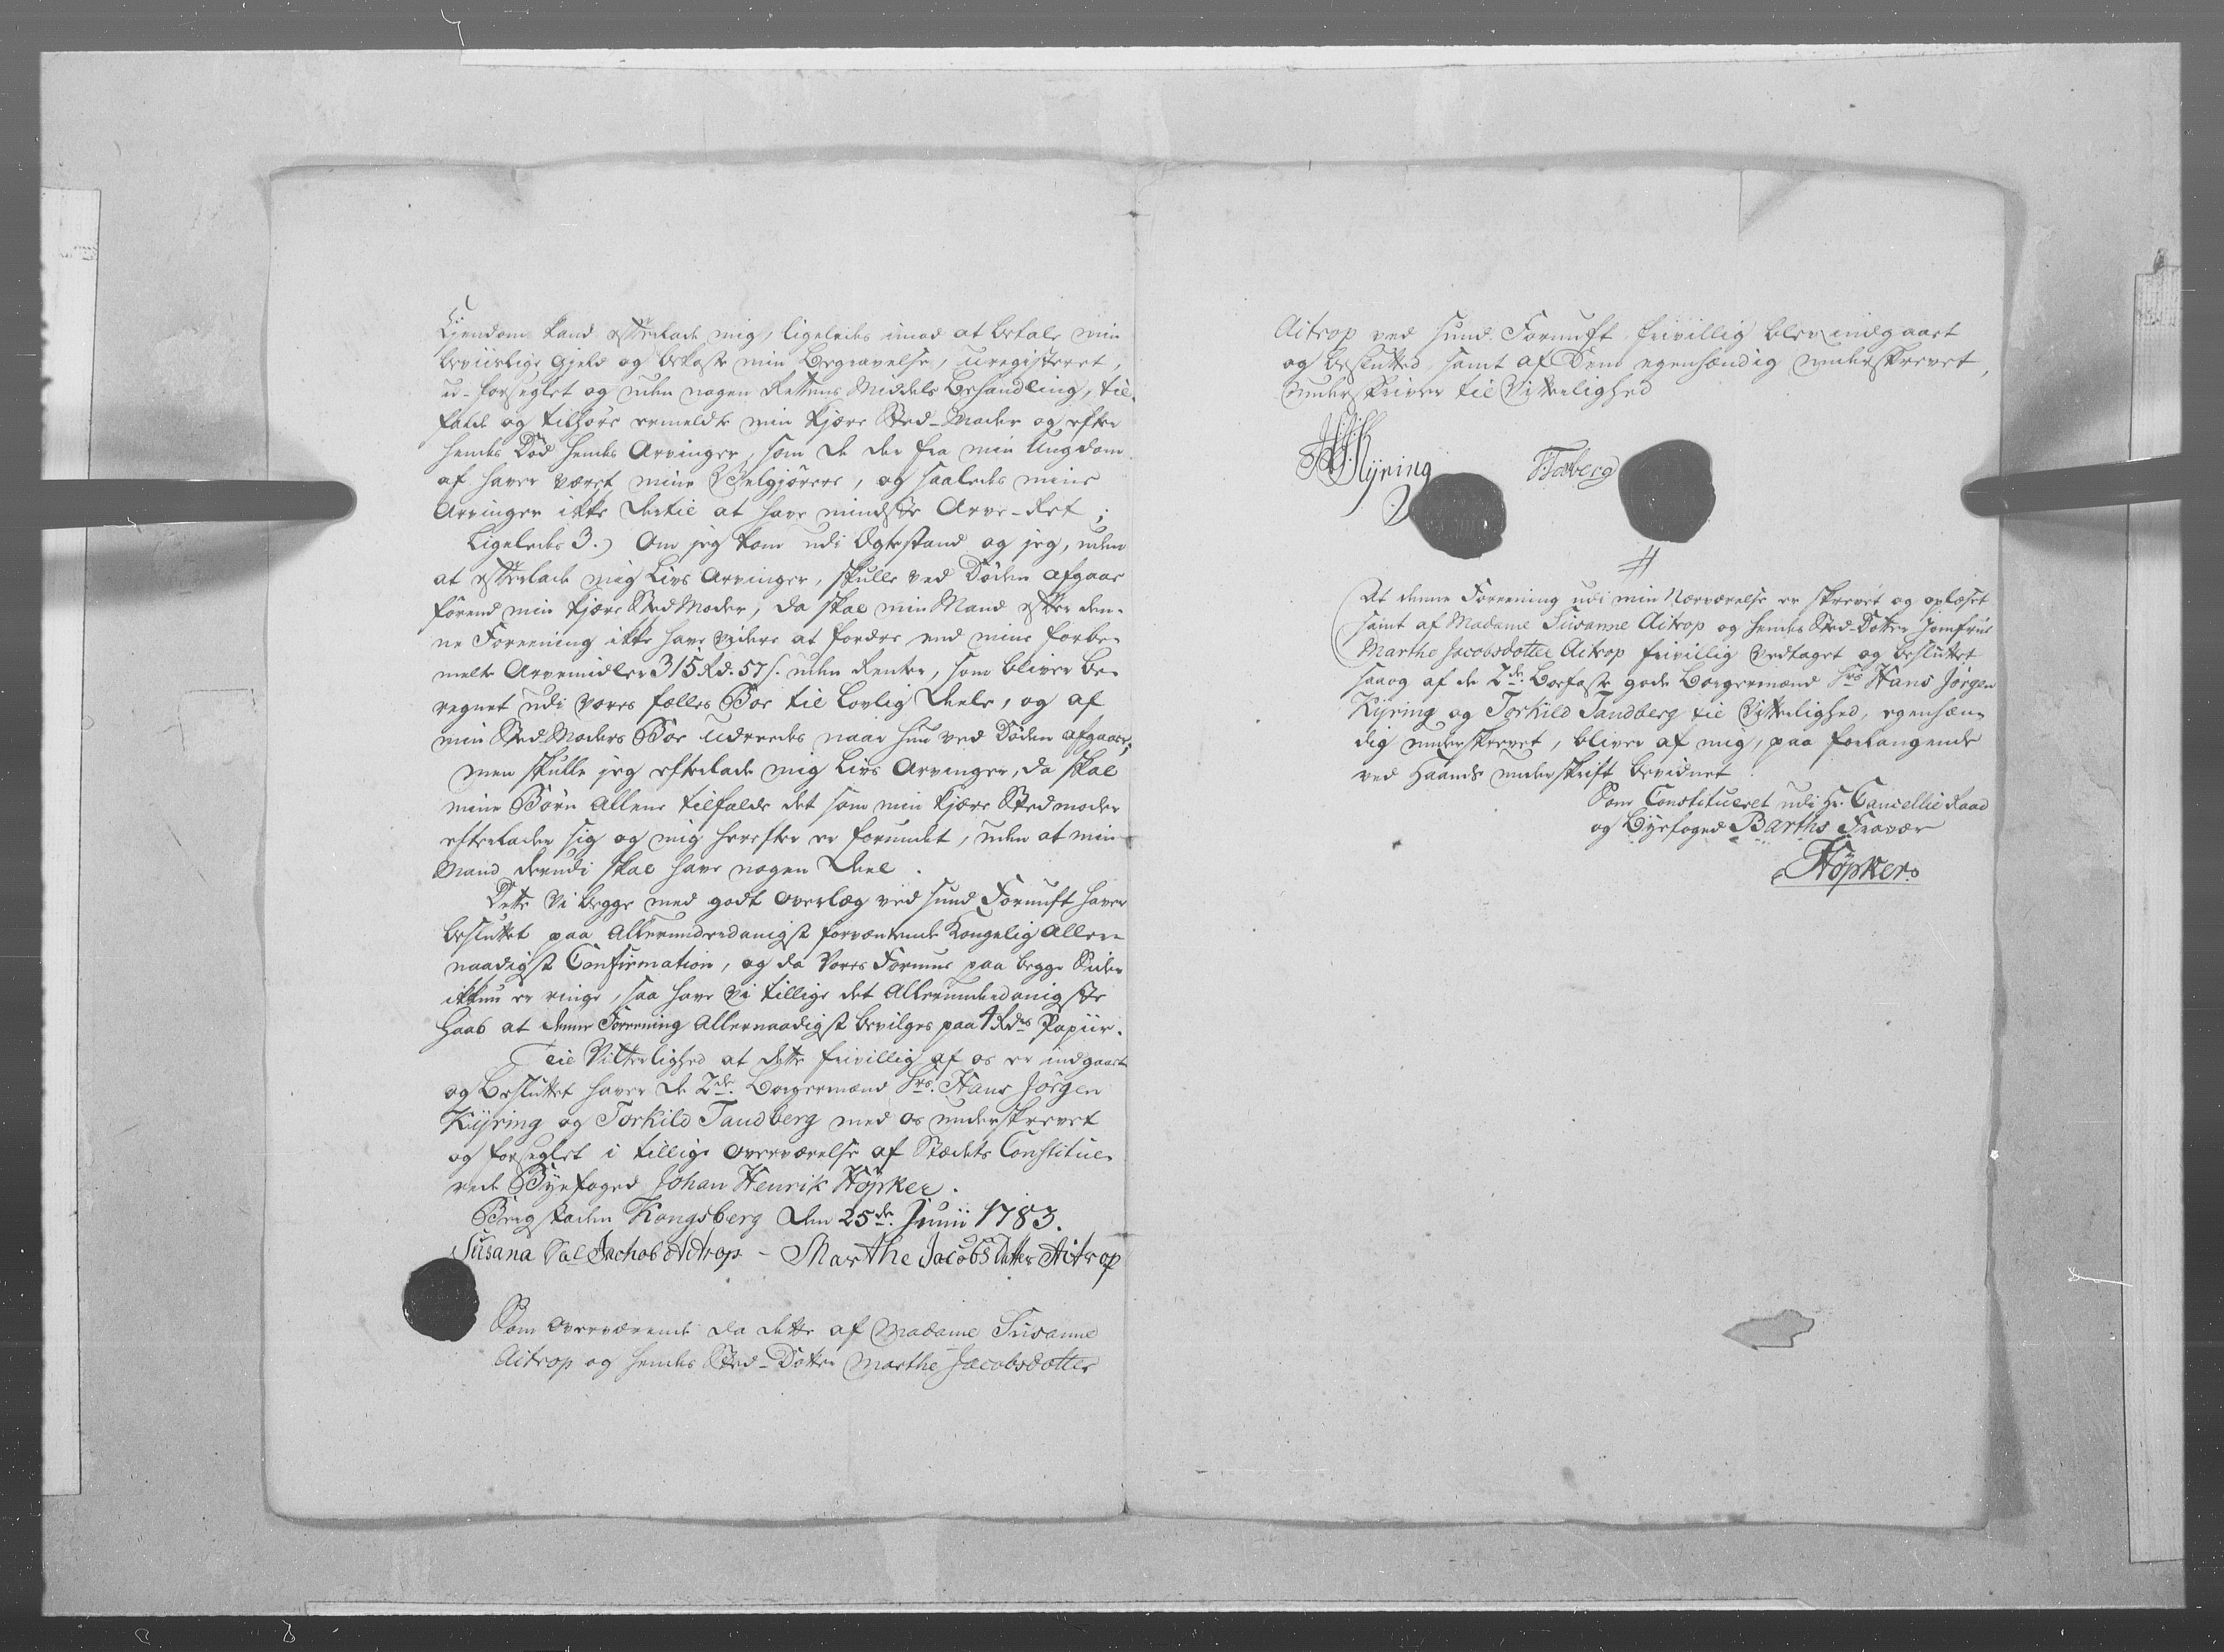 Ejendom kand efterlade mig, ligeledes imod at betale min
beviislige Gjeld og bekoste min Begravelse, uregisteret,
u-forseglet og uden nogen Rettens Middels Behandling, til-
falde og tilhøre ermeldte min kjære Sted-Moder og efter
hendes Død hendes Arvinger, som de der fra min Ungdom
af haver været mine Velgjørere, og saaledes mine
Arvinger ikke dertil at have mindste Arve-Ret;
Ligeledes 3.) Om jeg kom udi Ægtestand og jeg, uden
at efterlade mig Livs Arvinger, skulle ved Døden afgaae
førend min kjære Sted Moder, da skal min Mand efter den-
ne Foreening ikke have videre at fordre, end mine forbe-
melte Arvemidler 315 Rd. 57 s. uden Renter, som bliver be-
regnet udi vores fælles Boe til Lovlig Deele, og af
min Sted Moders Boe udreedes naar hun ved Døden afgaaer,
men skulle jeg efterlade mig Livs Arvinger, da skal
mine Børn allene tilfalde det som min kjære Stedmoder
efterlader sig og mig herefter er forundt, uden at min
Mand derudi skal have nogen Deel.
Dette Vi begge med godt Overlæg ved sund Fornuft haver
besluttet paa Allerunderdanigst forventende Kongelig Aller-
naadigst Confirmation, og da Vores Formue paa begge Sider
ikkun er ringe, saa have Vi tillige det Allerunderdanigste
Haab at denne Foreening Allernaadigst bevilges paa 4 Rdrs Papiir.
Til Vitterlighed at dette frivillig af os er indgaaet
og Besluttet haver de 2de. Borgermænd Sr. Hans Jørgen
Kijring og Torkild Tandberg med os underskrevet
og forseglet i tillige Overværelse af Stædets Constitue-
rede Byefoged Johan Henrik Höpker.
Bergstaden Kongsberg den 25de. Junii 1783.
Susana Sal Jachob Aitrop - Marthe Jacobs Datter Aitrop
Som Overværende da dette af Madame Susanne
Aitrop og hendes Sted-Datter Marthe Jacobsdatter
Aitrop ved sund Fornuft frivillig blev indgaaet
og besluttet, samt af Dem egenhændig underskrevet,
underskriver til Vitterlighed
HJKijring
TTandberg
At denne Foreening udi min Nærværelse er skrevet og oplæset
samt af Madame Susanne Aitrop og hendes Sted-Dotter Jomfrue
Marthe Jacobsdotter Aitrop frivillig vedtaget og besluttet
saaog af de 2de. Boefaste gode Borgermænd Sr. Hans Jørgen
Kijring og Torkild Tandberg til Vitterlighed, egenhæn-
dig underskrevet, bliver af mig, paa forlangende
ved Haands underskrift bevidnet.
Som Constitueret udi Hr. Cancellie Raad
og Byefoged Barths Fravær
Höpker